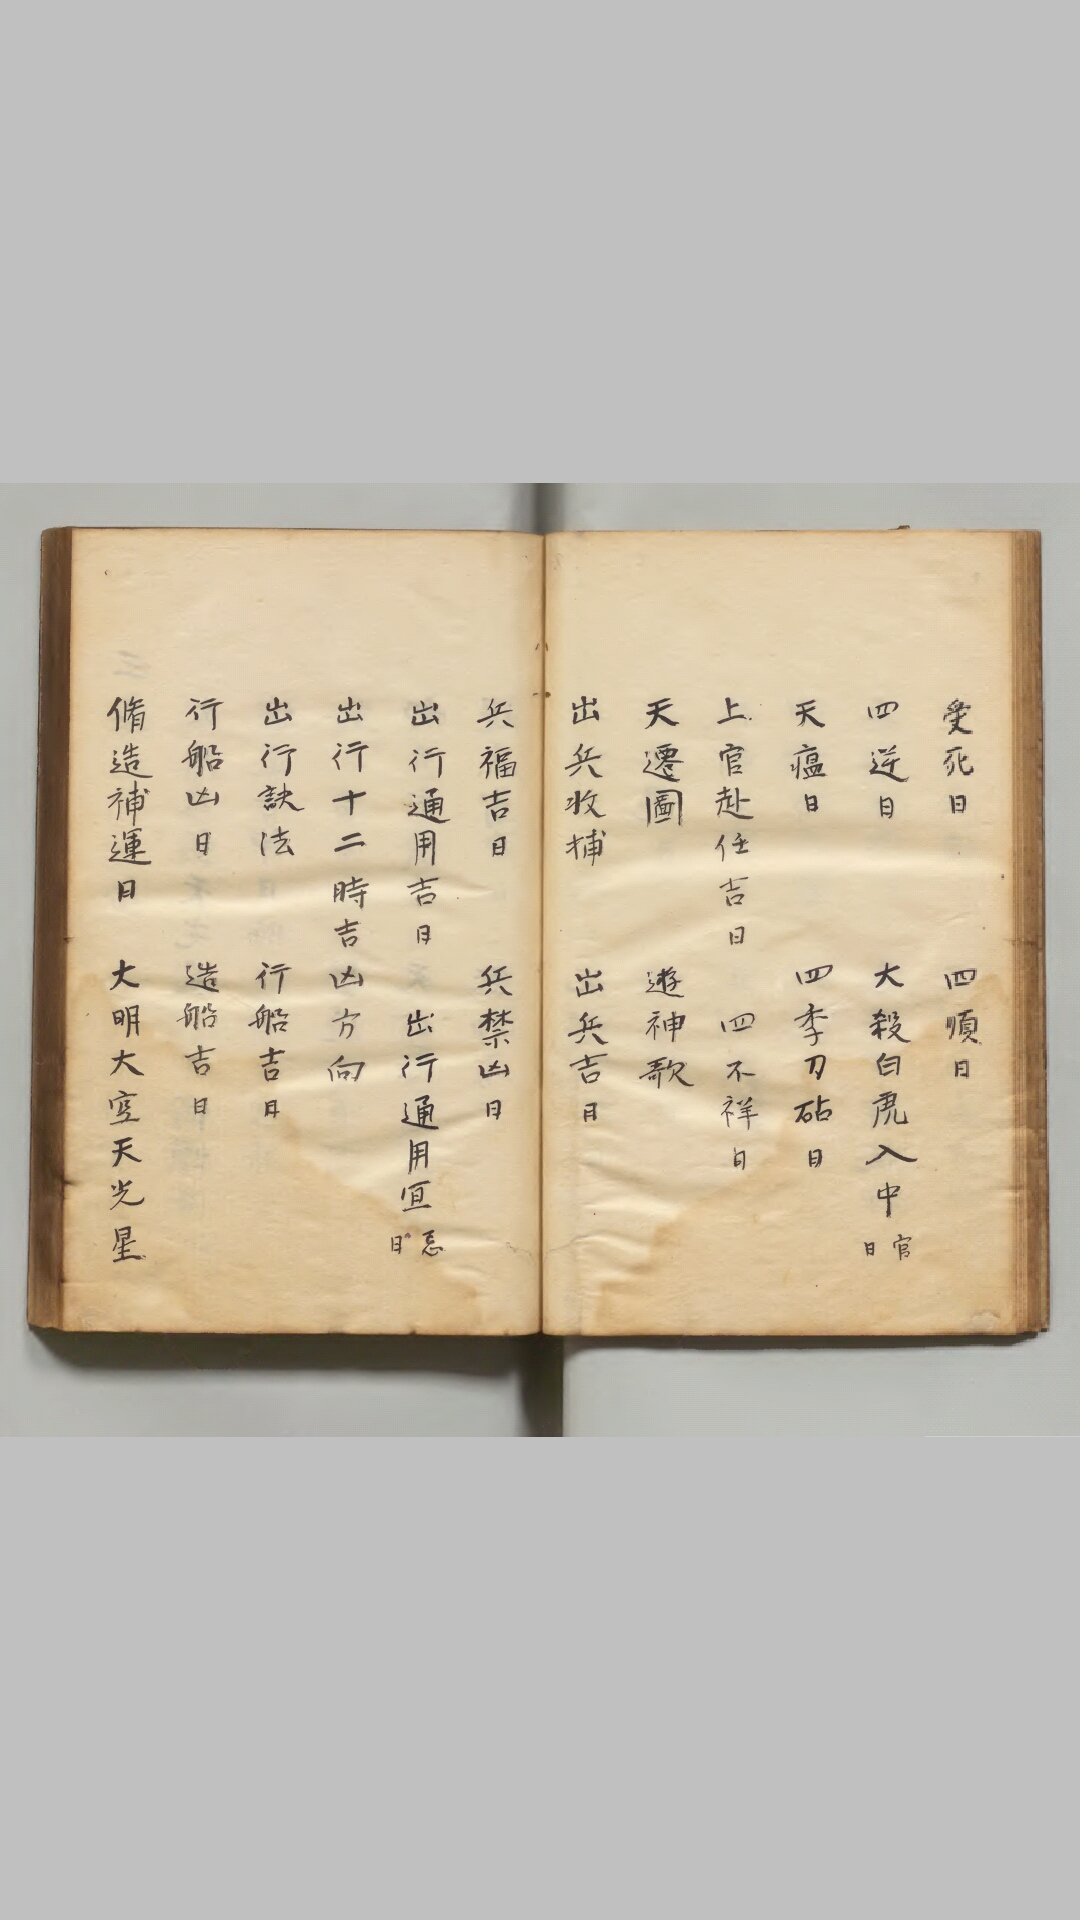 受死日 四順日
四逆日 大殺白虎入中官日
天瘟日 四季刀砧日
上官赴任吉日 四不祥日
天遷圖 遊神歌
出兵收捕 出兵吉日
兵福吉日 兵禁凶日
出行通用吉日 出行通用宜忌日
出行十二時吉凶方向
出行訣法 行船吉日
行船凶日 造船吉日
脩造補運日 大明大空天光星